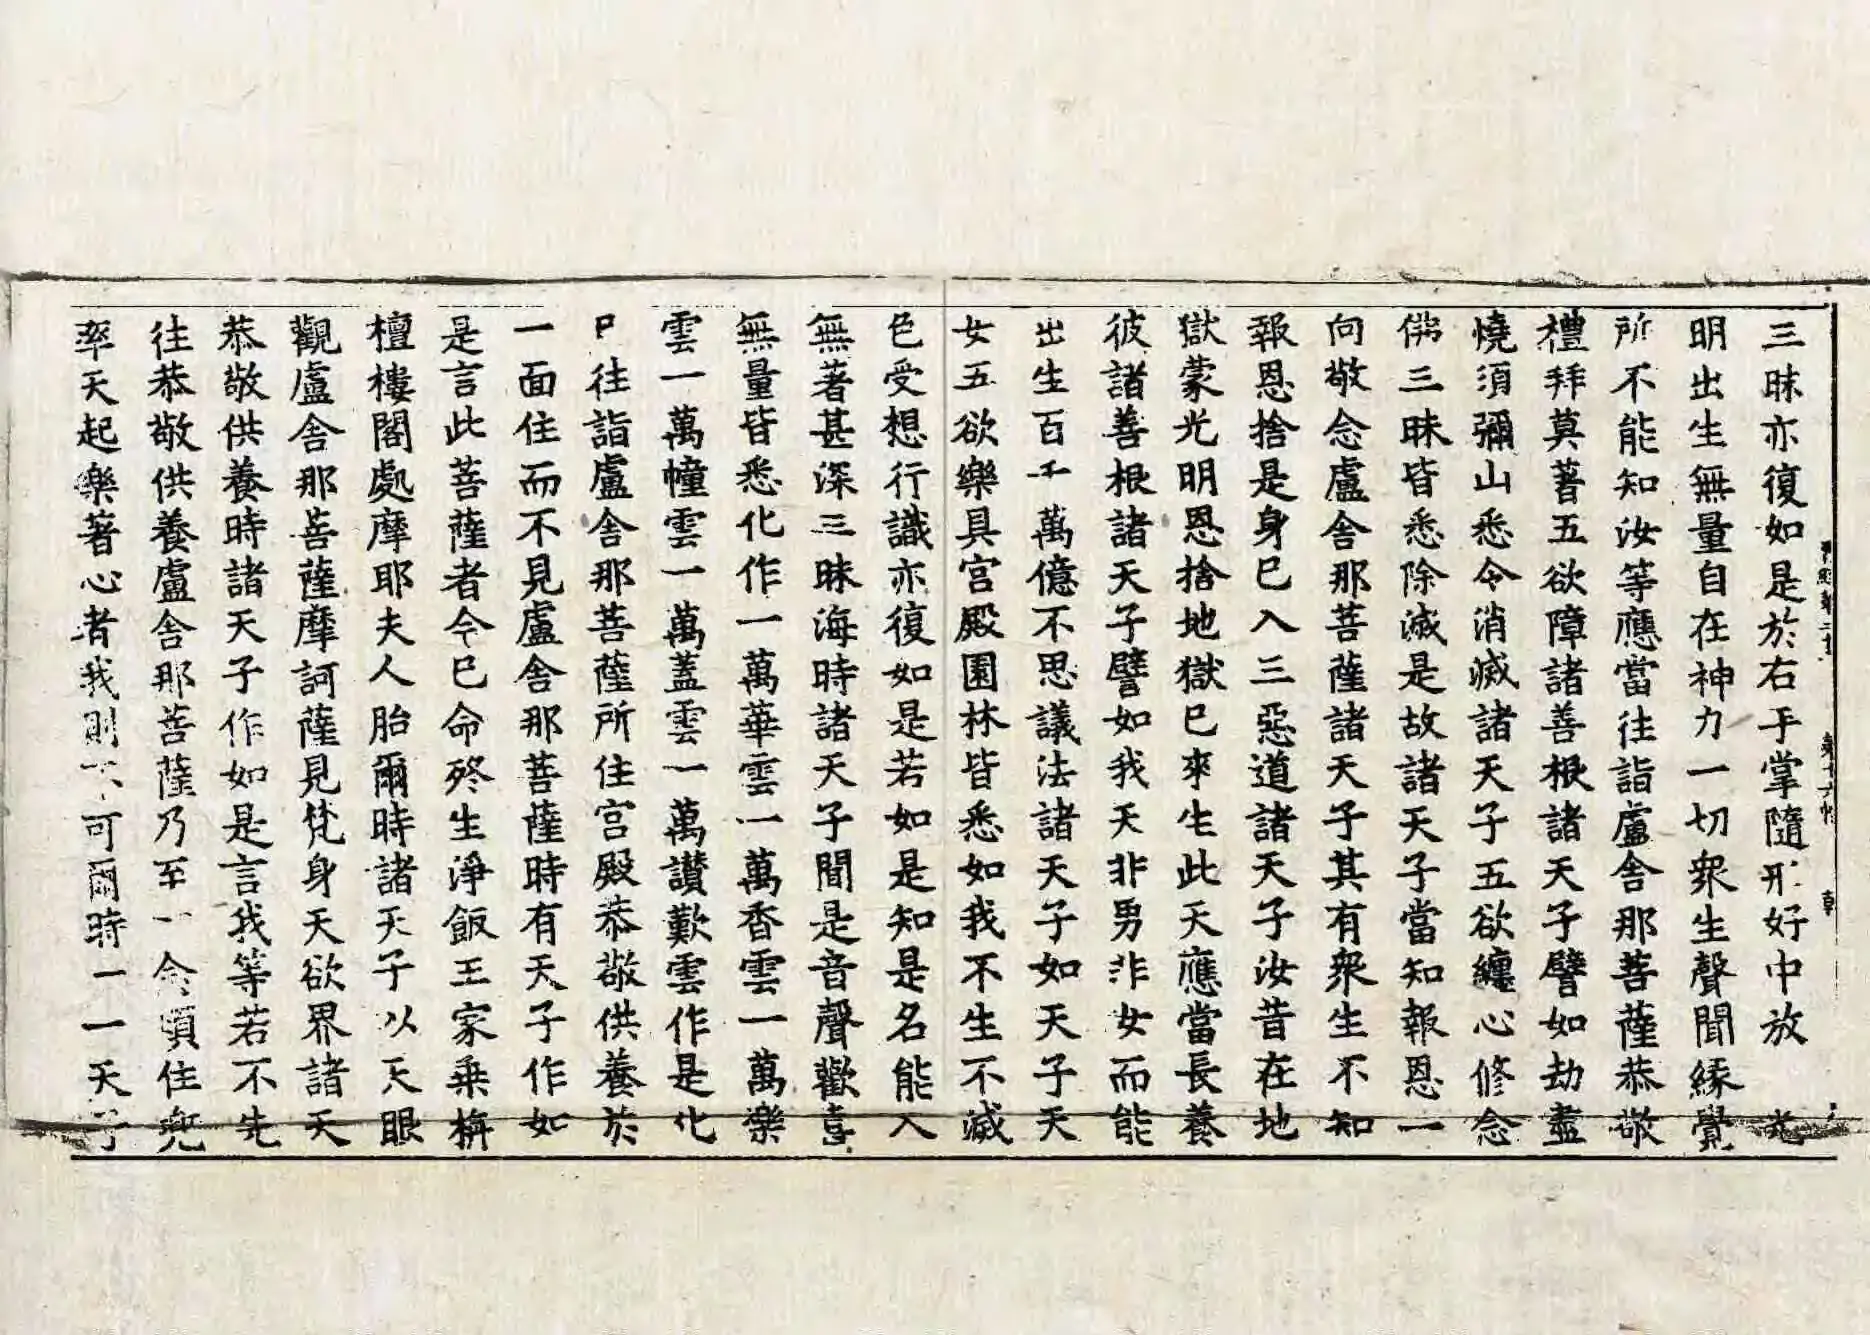 三昧亦復如是於右手掌隨形好中放光
明出生無量自在神力一切衆生聲聞緣覺
所不能知汝等應當往詣盧舍那菩薩恭敬
禮拜莫著五欲障諸善根諸天子譬如劫盡
燒須彌山悉令消滅諸天子五欲纏心修念
佛三昧皆悉除滅是故諸天子當知報恩一
向敬念盧舍那菩薩諸天子其有衆生不知
報恩捨是身已入三惡道諸天子汝昔在地
獄蒙光明恩捨地獄已來生此天應當長養
彼諸善根諸天子譬如我天非男非女而能
出生百千萬億不思議法諸天子如天子天
女五欲樂具宮殿園林皆悉如我不生不滅
色受想行識亦復如是若如是知是名能入
無著甚深三昧海時諸天子聞是音聲歡喜
無量皆悉化作一萬華雲一萬香雲一萬樂
雲一萬幢雲一萬蓋雲一萬讃歎雲作是化
已往詣盧舍那菩薩所住宮殿恭敬供養於
一面住而不見盧舍那菩薩時有天子作如
是言此菩薩者今已命終生淨飯王家乗栴
檀樓閣處摩耶夫人胎爾時諸天子以天眼
觀盧舍那菩薩摩訶薩見梵身天欲界諸天
恭敬供養時諸天子作如是言我等若不先
往恭敬供養盧舍那菩薩乃至一念頃住兜
率天起樂著心者我則不可爾時一一天子